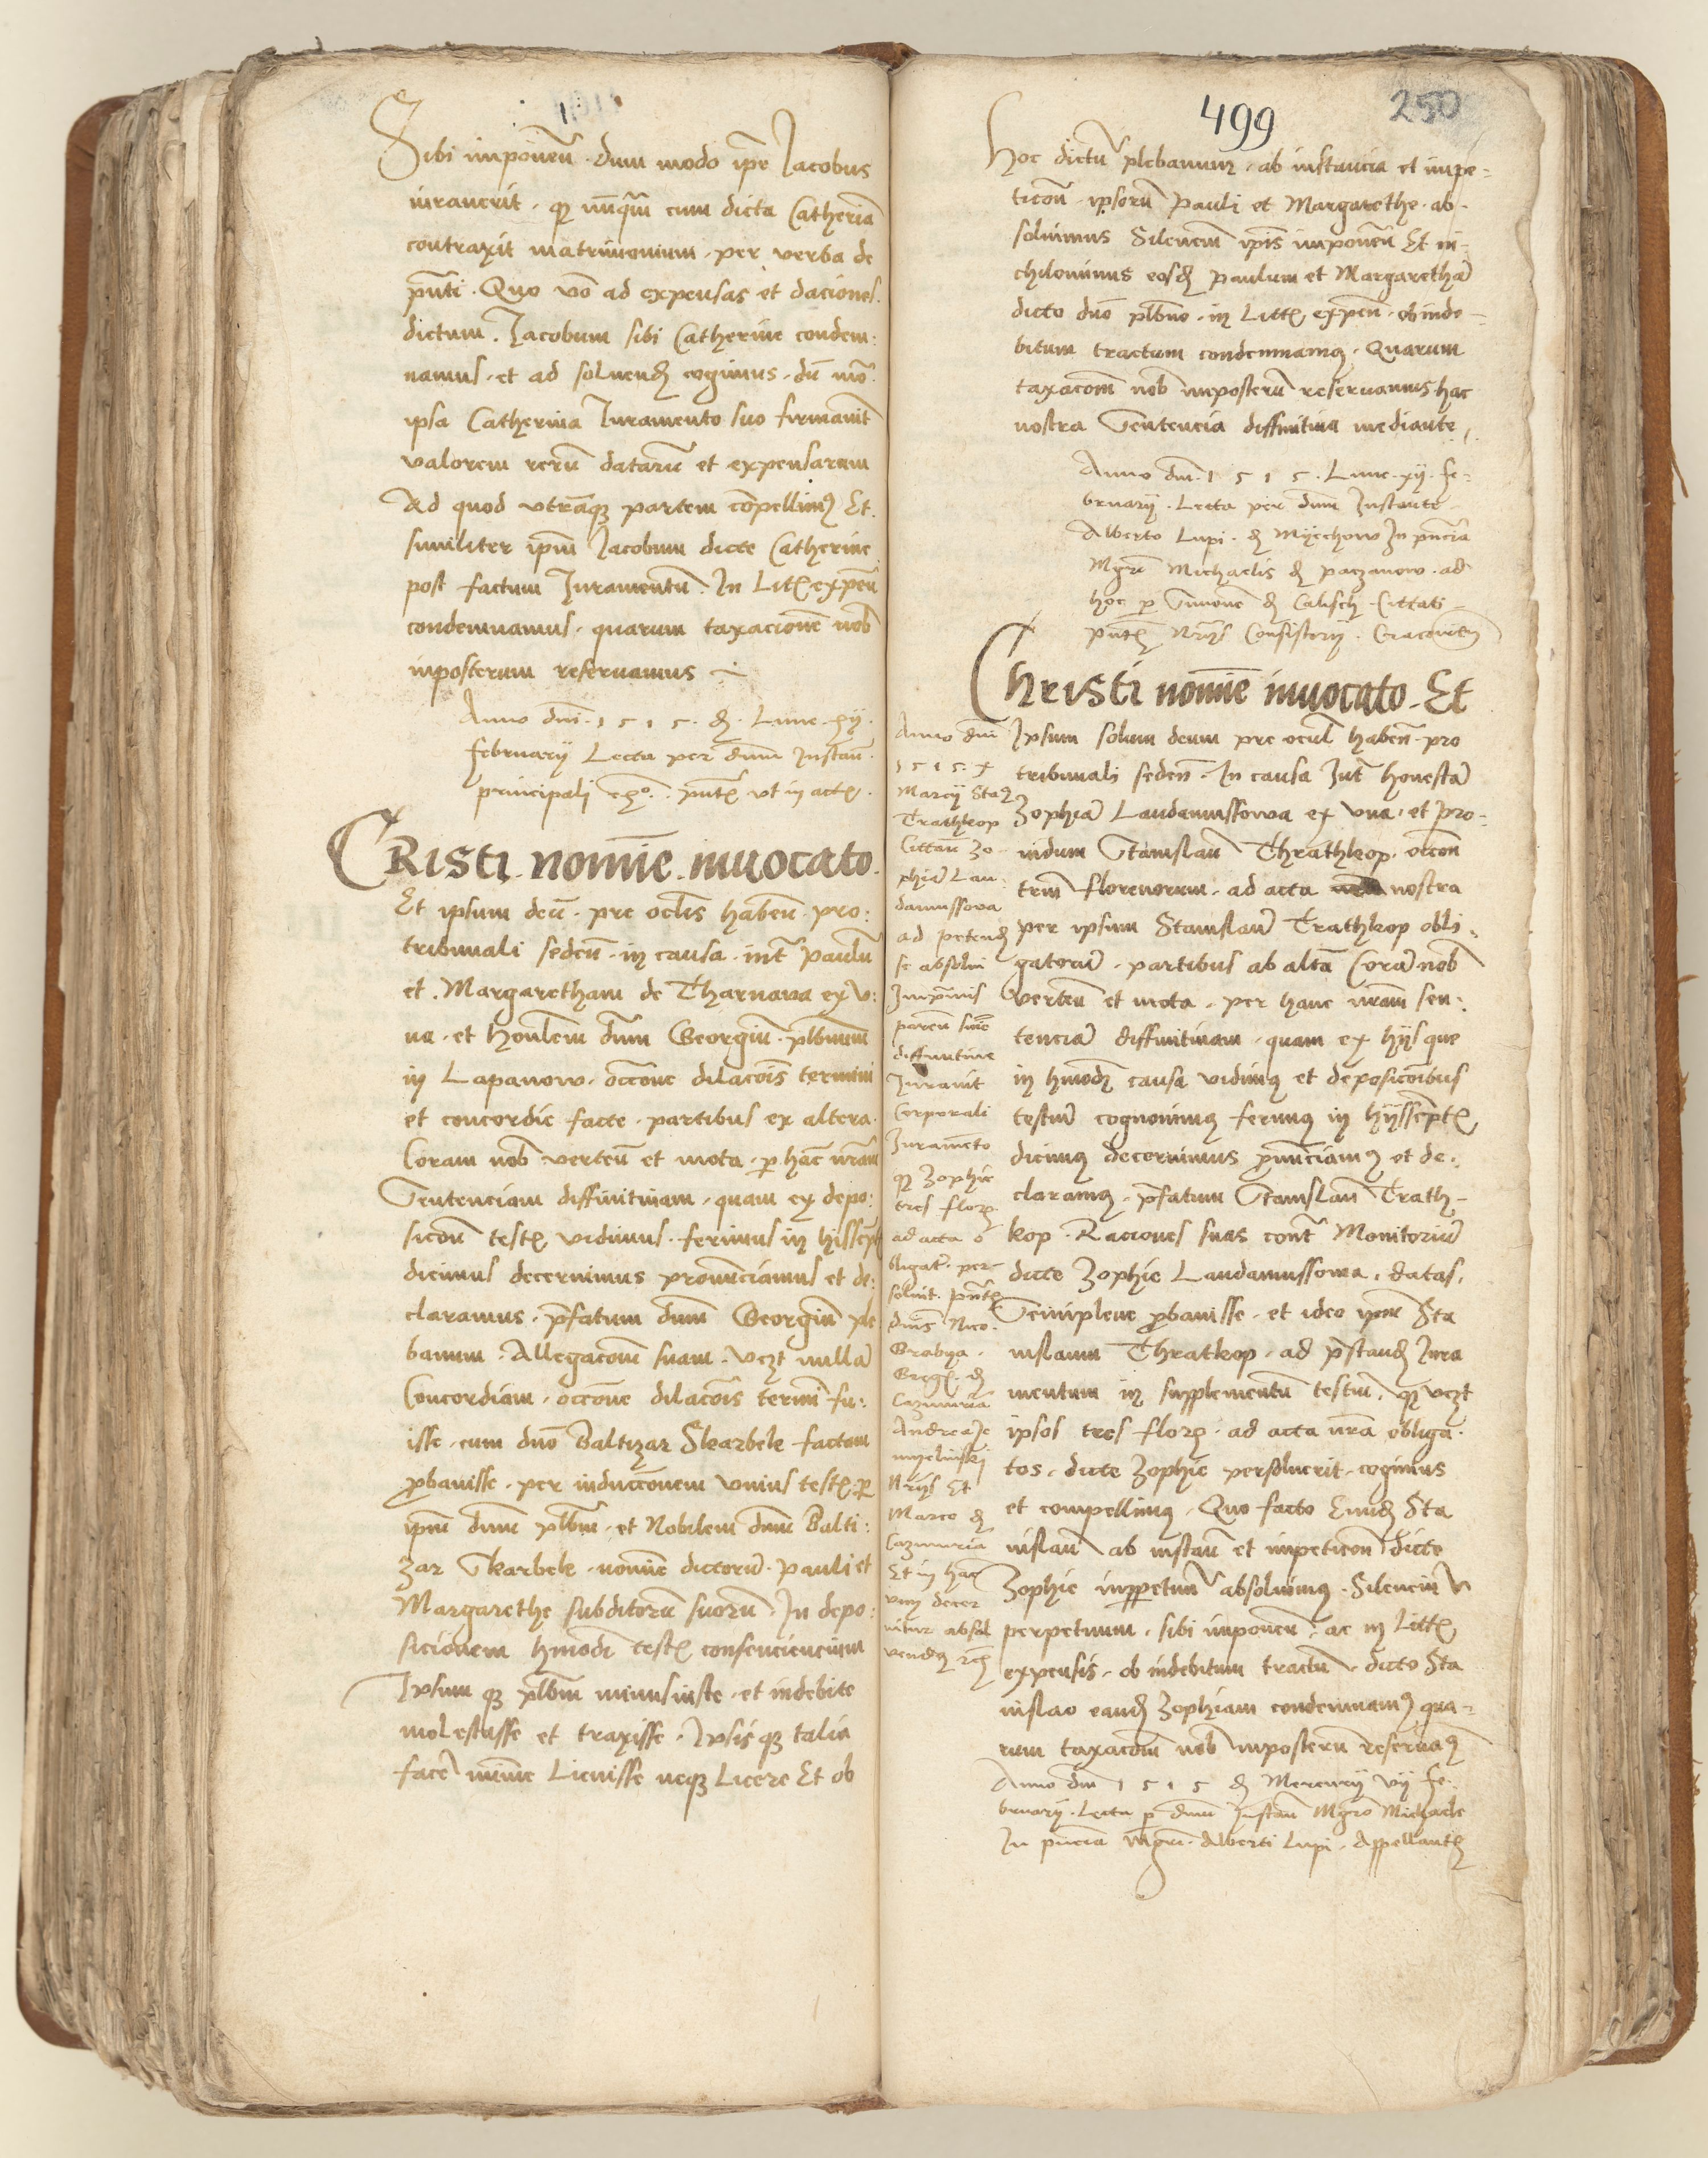 Sibi imponen̄ . dum modo ip̄e Jacobus
iuraverit . qȝ nūq̄m cum dicta Catherīa
contraxit matrimonium . per verba de
p̄nti . Quo vō ad expensas et daciones .
dictum . Jacobum sibi Catherine condem :
namus . et ad soluendꝭ cogimus . dū mō
ipsa Catherina Juramento suo firmauit
valorem rerū datarū et expensarum
Ad quod vtrāqȝ partem cōpellimꝰ Et .
similiter ip̄m Jacobum dicte Catherine
post factum Juramentū . In Litꝭ expen̄
condemnamus . quarum taxacionē nob̄
inposterum reseruamus
Anno dnī . 1515 . dꝭ . Lune . xij .
februarij Lecta per dnm Instan̄ .
principali p̄ntꝭ vt in actꝭ .
CRisti . nomīe . inuocato .
Et ipsum deū . pre oclīs haben̄ . pro :
tribunali seden̄ . in causa . int̄ paulū
et . Margaretham de Tharnaua ex v :
na . et Honlem dnm Georgiū . plbnum
in Lapanow . occōne dilacōis termini
et concordie facte . partibus ex altera .
Coram nob̄ verten̄ et mota . p̱ hāc nr̄am
Sentenciam diffinitiuam . quam ex depo :
sicōn̄ testꝭ vidimus . ferimus in hisscpt̄
dicimus decernimus pronūciamus et de :
claramus . p̄fatum dnm Georgiū ple
banum . Allegacōm suam . vcȝt nullā
Concordiam . occōne dilacōis termī fu :
isse . cum dnō Baltizar Skarbek factam
ꝓbauisse . per induccōnem vnius testꝭ . p̱
ip̄m dnm plbm̄ . et Nobilem dnm Balti :
zar Skarbek . nomīe dictorū . pauli et
Margarethe subditorū suorū . In depo :
sicionem hmodī testꝭ consenciencium
Ipsum qȝ plbm̄ minus iuste . et indebite
molestasse et traxisse . Ipsis qȝ talia
facē minīe Licuisse neqȝ Licere Et ob
499
250
Hoc dictū plebanum . ab instancia et impe :
ticōn̄ . ipsorū Pauli et Margarethe . ab .
soluimus Silencm̄ ip̄is imponen̄ Et ni :
chilominus eosdꝭ Paulum et Margarethā
dicto dnō plbno . in Littꝭ expen̄ . ob inde :
bitum tractum condemnamꝰ . Quarum
taxacōm nob̄ inposterū reseruamus hac
nostra Sentencia diffinitiua mediante .
Anno dnī . 1515 . Lune . xij . fe :
bruarij . Lecta per dnm Instante
Alberto Lupi . dꝭ Myechow In pn̄cia
Mgrī Michaelis dꝭ Paczanow . ad
hoc p̱ Simone dꝭ Calisch . Cittati
p̄ntꝭ Nrijs Consistorij . Cracovien̄
CHristi nomīe inuocato . Et
Ipsum solum deum pre ocul̄ haben̄ . pro
tribunali seden̄ . In causa Int̄ honestā
Zophiā Laudamussowa ex vna . et pro :
uidum Stanislaū Thrathkop . occōn̄
trm̄ florenorum . ad acta nostra
per ipsum Stanislaū Trathkop obli :
gatorū . partibus ab altā Corā nob̄
verten̄ et mota . per hanc nr̄am sen :
tenciā diffinitiuam . quam ex hijs que
in hmodī causa vidimꝰ et deposicōibus
testiū cognouimꝰ ferimꝰ in hijsscptꝭ
dicimꝰ decernimus ꝓnūnciamꝰ et de :
claramꝰ . p̄fatum Stanislaū Trath
kop . Raciones suas cont̄ Monitoriū
dicte Zophie Laudamussowa . datas .
Semiplene ꝓbauisse . et ideo ip̄m Sta
nislaum Thratkop . ad p̄standꝭ Jura
mentum in supplementū testiū . qȝ vcȝt
ipsos tres florꝭ . ad acta nr̄a obliga .
tos . dicte Zophie persoluerit . cogimus
et compellimꝰ . Quo facto Eundꝭ Sta
nislaū ab instan̄ et impeticōn̄ dicte
Zophie inp̱petuū absoluimꝰ . Silenciū
perpetuum . sibi imponen̄ . ac in Littꝭ
expensis . ob indebitum tractū . dicto Sta
nislao eandꝭ Zophiam condemnamꝰ qua :
rum taxacōm nob̄ inposterū reseruaꝰ
Anno dnī 1515 dꝭ Mercurij vij fe :
bruarij . Lecta p̱ dnm Instan̄ Mgrō Michaele
In pn̄cia Mgrī . Alberti Lupi . Appellantꝭ
Anno dnī
1515 . x
Marcij Sta
Trathkop
Cittan̄ Zo
phiā Lau :
damussova
ad petendꝭ
se absolui
Inp̄mis
paren̄ snīe
diffinitiue
Jurauit
Corporali
Juramēto
qȝ Zophie
tres florꝭ
ad acta o
bligat̄ . per
soluit . p̄ntꝭ
dnīs Nico .
Grabya .
Gregꝭ . dꝭ
Cazimiria
Andrea de
Nrijs Et
Marco dꝭ
Cazimiria
Et in hac
decer
nitur absol
vendꝰ